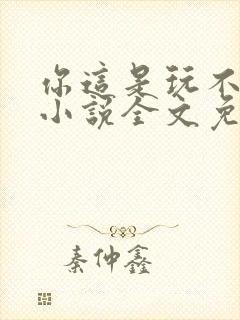 你這是玩不
小說全文免
秦仲鑫